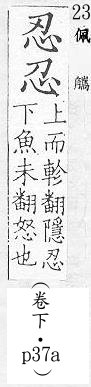 23 佩觿
忍
上而軫翻隱忍
下魚未翻怒也
(卷下・p37a)